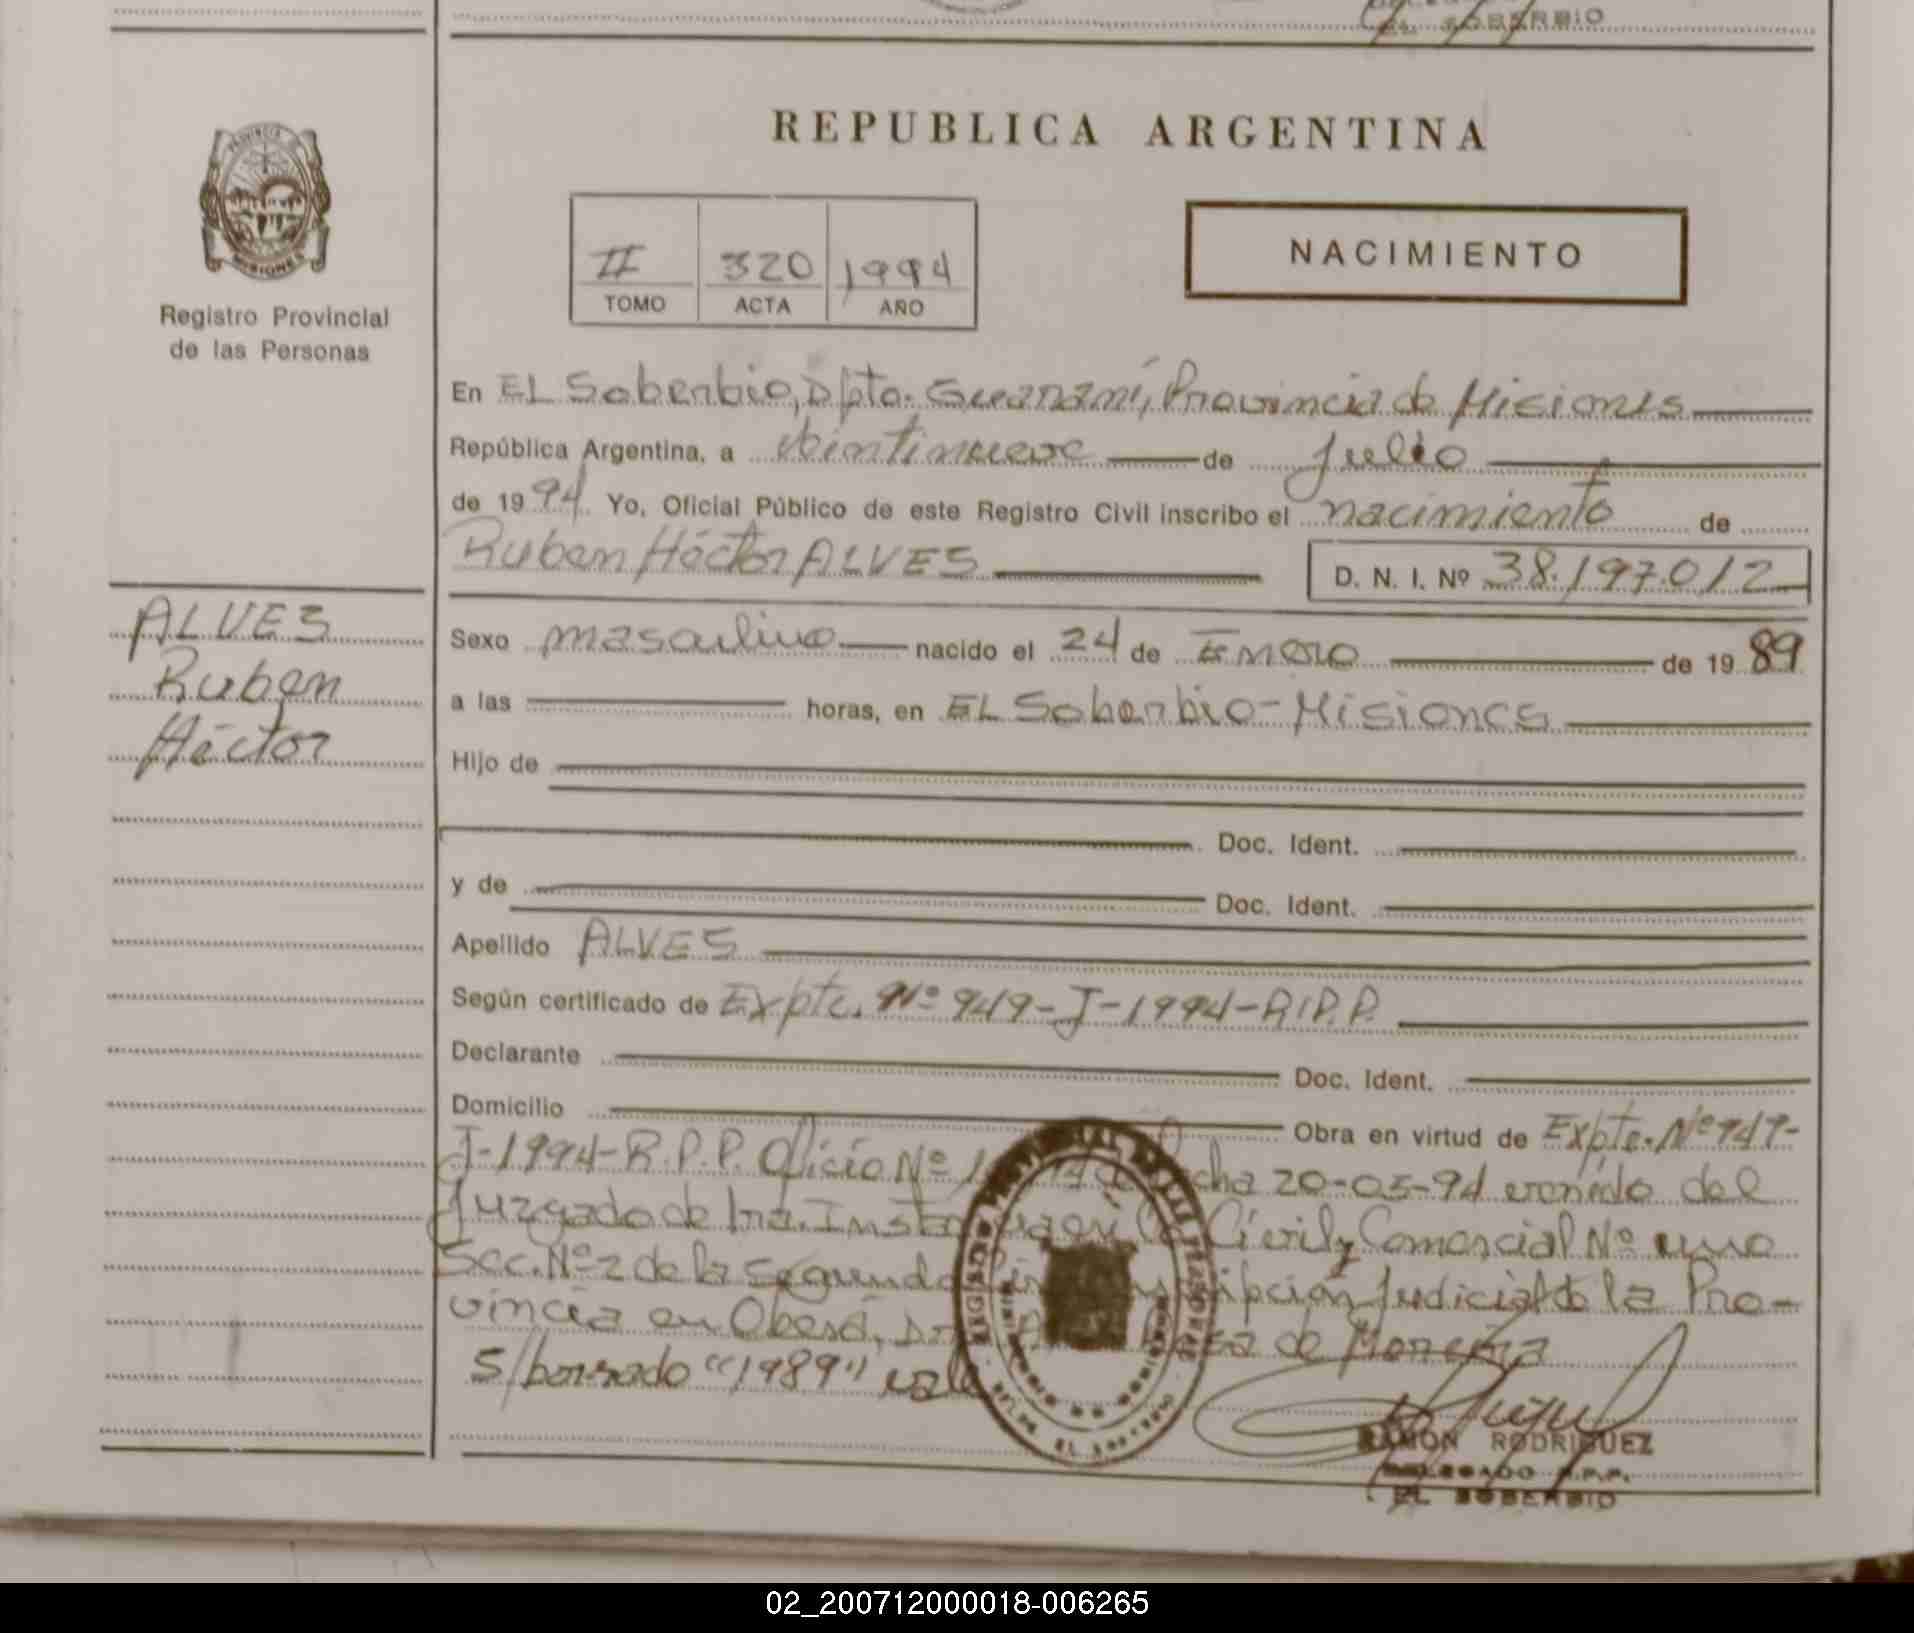 EL SOBERBIO
REPUBLICA ARGENTINA
PROVINCIA
MISIONES
Registro Provincial
de las Personas
II 320 1994
TOMO ACTA AÑO
NACIMIENTO
En EL Soberbio, Dpto. Guaraní, Provincia de Misiones
República Argentina, a Veintinueve de Julio
de 1994. Yo, Oficial Público de este Registro Civil inscribo el nacimiento de
Ruben Héctor ALVES D. N. I. Nº 38.197.012
ALVES
Ruben
Héctor
Sexo masculino nacido el 24 de Enero de 1989
a las horas, en EL Soberbio-Misiones
Hijo de
Doc. Ident.
y de Doc. Ident.
Apellido ALVES
Según certificado de Expte. Nº 949-J-1994-R.P.P.
Declarante Doc. Ident.
Domicilio Obra en virtud de Expte. Nº 949-
J-1994-R.P.P. Oficio Nº fecha 20-05-94 del
Juzgado de 1ra. Instancia en lo Civil y Comercial Nº uno
Sec. Nº 2 de la Segunda Circunscripción Judicial de la Pro-
vincia en Oberá, de Moreira
S/borrado "1989" vale
RAMON RODRIGUEZ
DELEGADO R.P.P.
EL SOBERBIO
02_200712000018-006265